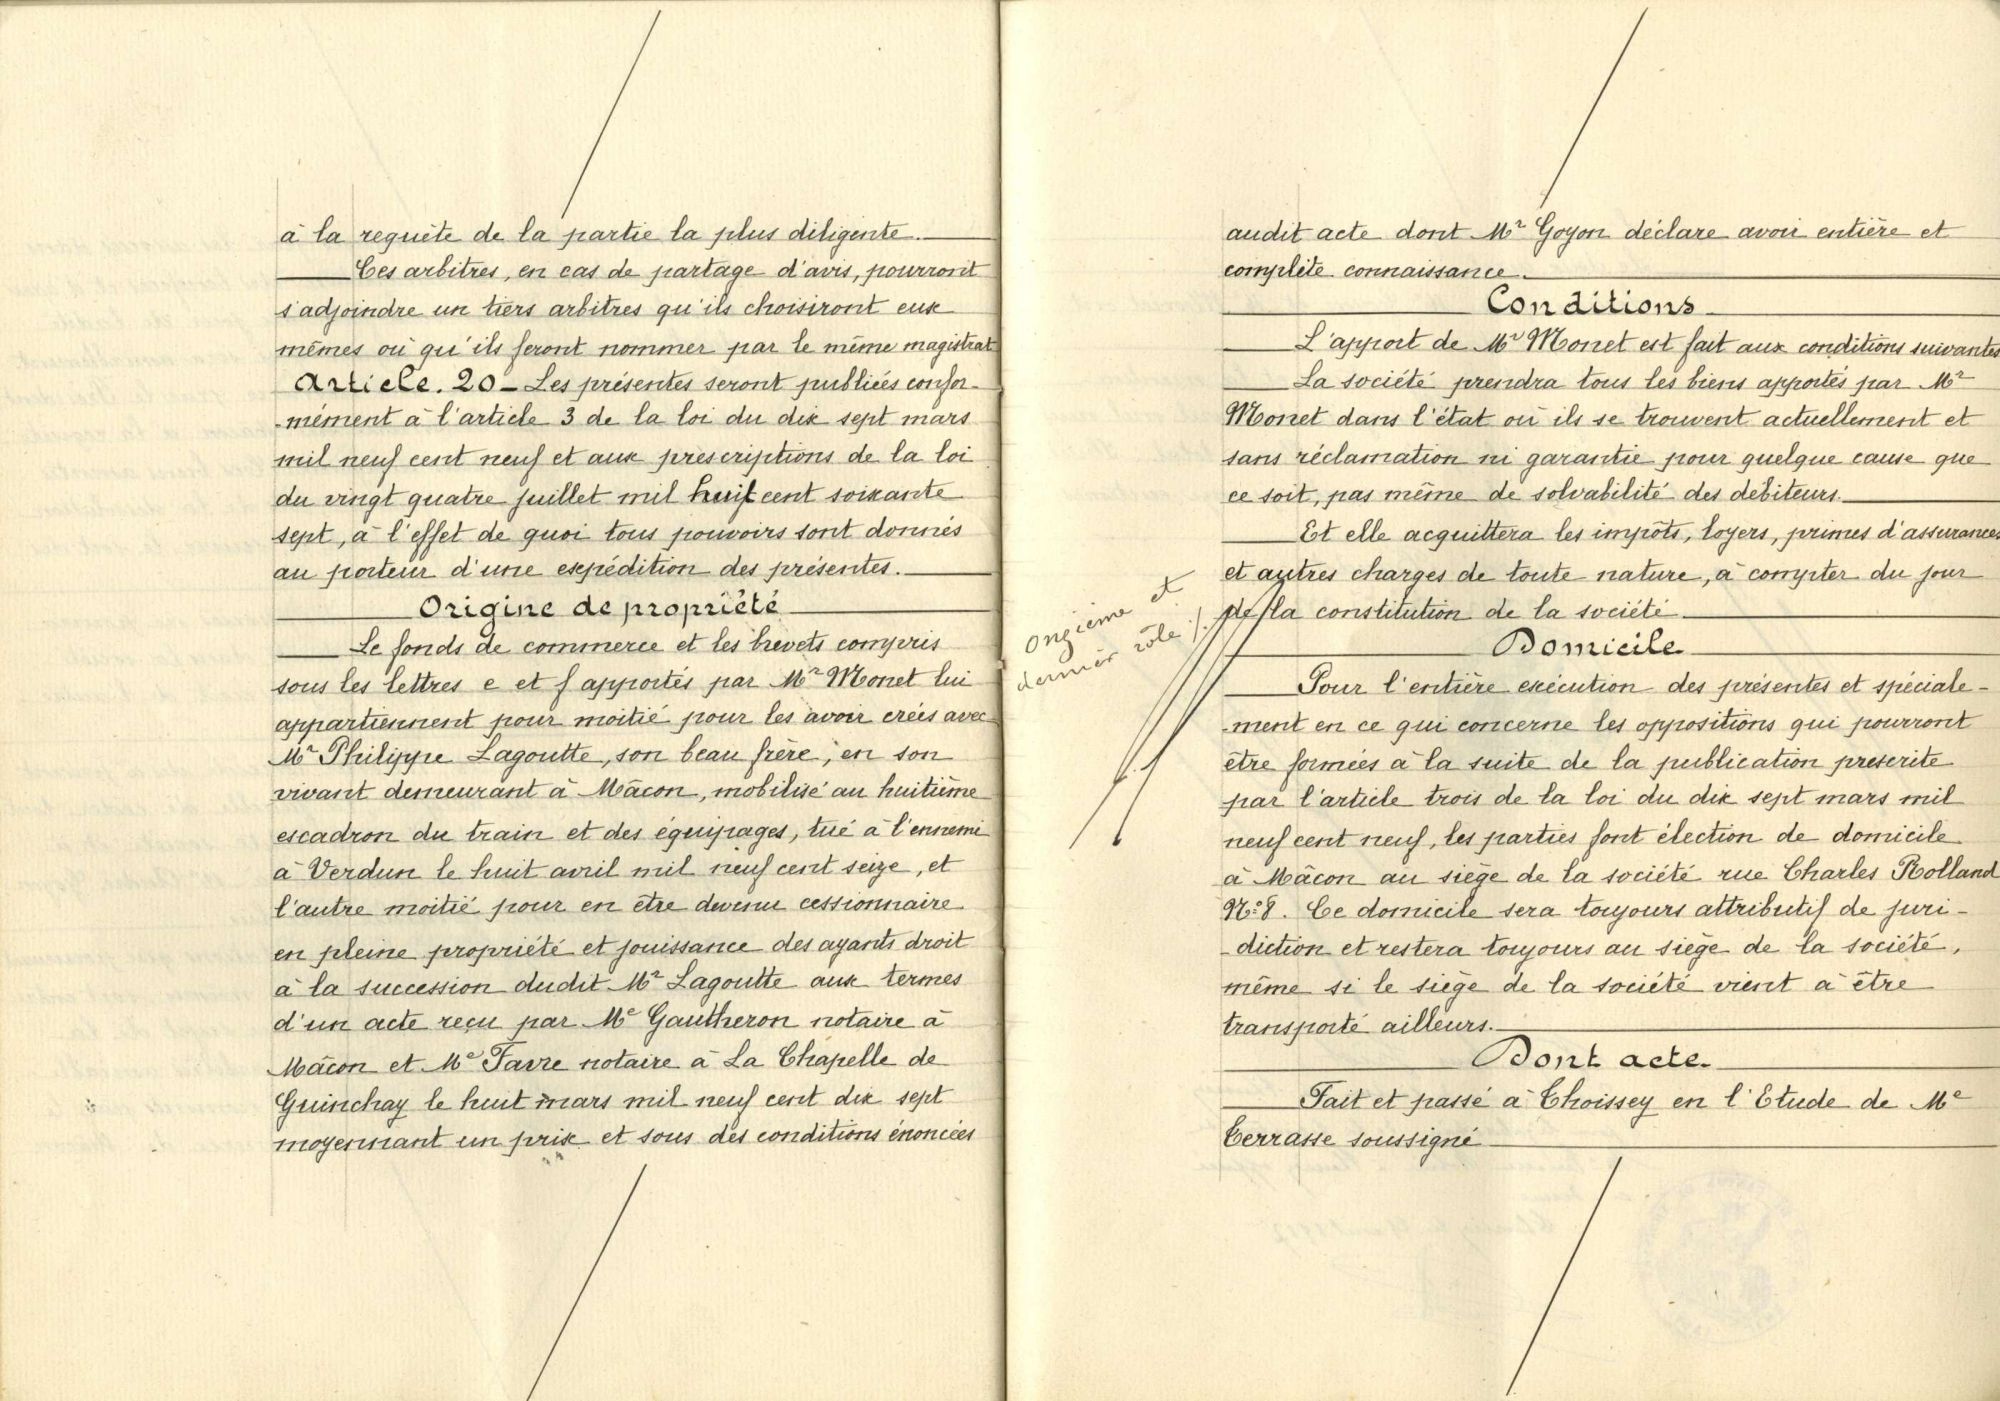 à la requête de la partie la plus diligente.
Ces arbitres, en cas de partage d'avis, pourront
s'adjoindre un tiers arbitres qu'ils choisiront eux
mêmes ou qu'ils feront nommer par le même magistrat
Article. 20 - Les présentes seront publiées confor-
-mément à l'article 3 de la loi du dix sept mars
mil neuf cent neuf et aux prescriptions de la loi
du vingt quatre juillet mil huit cent soixante
sept, à l'effet de quoi tous pouvoirs sont donnés
au porteur d'une expédition des présentes.
Origine de propriété
Le fonds de commerce et les brevets compris
sous les lettres e et f apportés par Mr Monet lui
appartiennent pour moitié pour les avoir créés avec
Mr Philippe Lagoutte, son beau frère, en son
vivant demeurant à Mâcon, mobilisé au huitième
escadron du train et des équipages, tué à l'ennemi
à Verdun le huit avril mil neuf cent seize, et
l'autre moitié pour en être devenu cessionnaire
en pleine propriété et jouissance des ayants droit
à la succession dudit Mr Lagoutte aux termes
d'un acte reçu par Me Gautheron notaire à
Mâcon et Me Favre notaire à La Chapelle de
Guinchay le huit mars mil neuf cent dix sept
moyennant un prix et sous des conditions énoncées
audit acte dont Mr Goyon déclare avoir entière et
complète connaissance.
Conditions
L'apport de Mr Monet est fait aux conditions suivantes
La société prendra tous les biens apportés par Mr
Monet dans l'état où ils se trouvent actuellement et
sans réclamation ni garantie pour quelque cause que
ce soit, pas même de solvabilité des débiteurs.
Et elle acquittera les impôts, loyers, primes d'assurances
et autres charges de toute nature, à compter du jour
de la constitution de la société
Onzième et
dernier rôle
Domicile
Pour l'entière exécution des présentes et spéciale-
-ment en ce qui concerne les oppositions qui pourront
être formées à la suite de la publication prescrite
par l'article trois de la loi du dix sept mars mil
neuf cent neuf, les parties font élection de domicile
à Mâcon au siège de la société rue Charles Rolland
No 8. Ce domicile sera toujours attributif de juri-
-diction et restera toujours au siège de la société,
même si le siège de la société vient à être
transporté ailleurs.
Dont acte.
Fait et passé à Choissey en l'Etude de Me
Terrasse soussigné